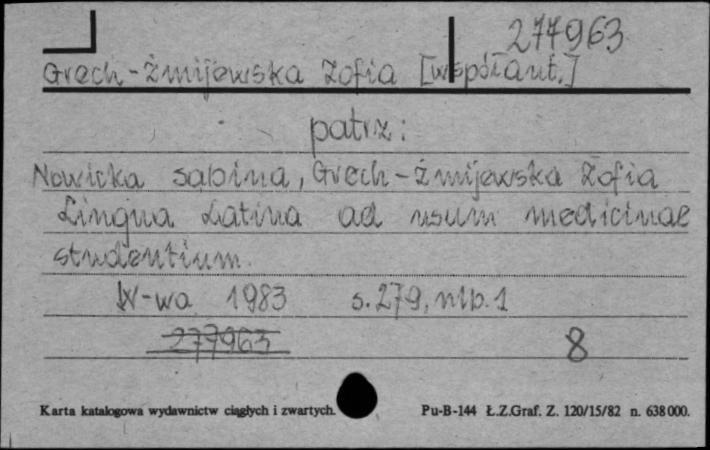 277963
Grech-Żmijewska Zofia [współaut.]
patrz:
Nowicka Sabina, Grech-Żmijewska Zofia
Lingua Latina ad usum medicinae
studentium.
W-wa 1983 s. 279, nlb. 1
277963 8
Karta katalogowa wydawnictw ciągłych i zwartych. Pu-B-144 Ł.Z.Graf. Z. 120/15/82 n. 638 000.